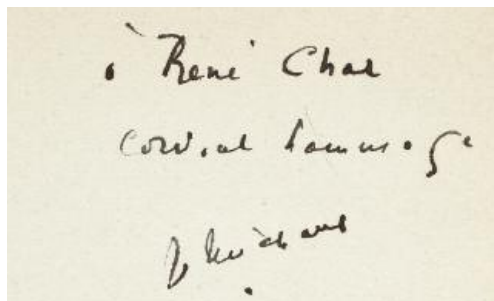 à René Char
cordial hommage
H Michaux